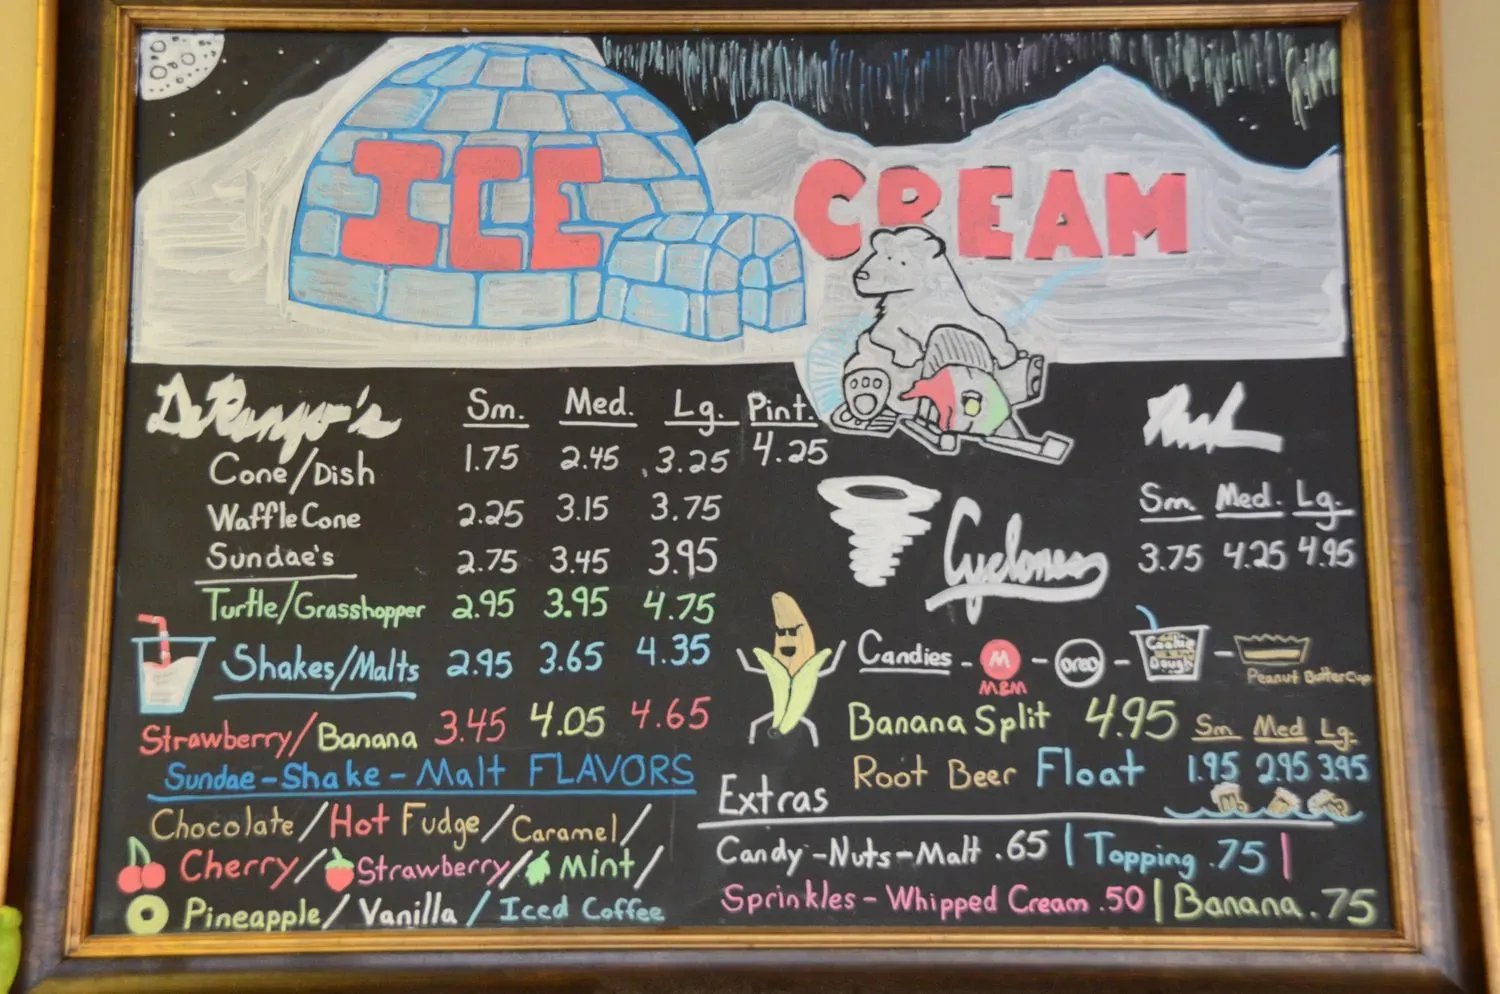 ICE CREAM
DiRenzo's Sm. Med. Lg. Pint.
Cone/Dish 1.75 2.45 3.25 4.25
Waffle Cone 2.25 3.15 3.75
Sundae's 2.75 3.45 3.95
Turtle/Grasshopper 2.95 3.95 4.75
Shakes/Malts 2.95 3.65 4.35
Strawberry/Banana 3.45 4.05 4.65
Sundae-Shake-Malt FLAVORS
Chocolate/Hot Fudge/Caramel/
Cherry/Strawberry/Mint/
Pineapple/Vanilla/Iced Coffee
Sm. Med. Lg.
Cyclones 3.75 4.25 4.95
Candies - M - OREO - Cookie Dough -
M&M Peanut Butter Cup
Banana Split 4.95 Sm Med Lg.
Root Beer Float 1.95 2.95 3.95
Extras
Candy-Nuts-Malt .65 | Topping .75 |
Sprinkles - Whipped Cream .50 | Banana .75